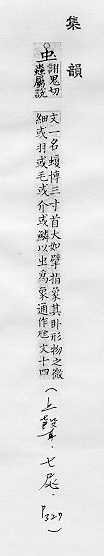 集韻
虫
詡鬼切
蟲屬說
文一名蝮博三寸首大如擘指象其臥形物之微
細或羽或毛或介或鱗以虫爲象通作虺文十四
(上聲·七尾·P327)